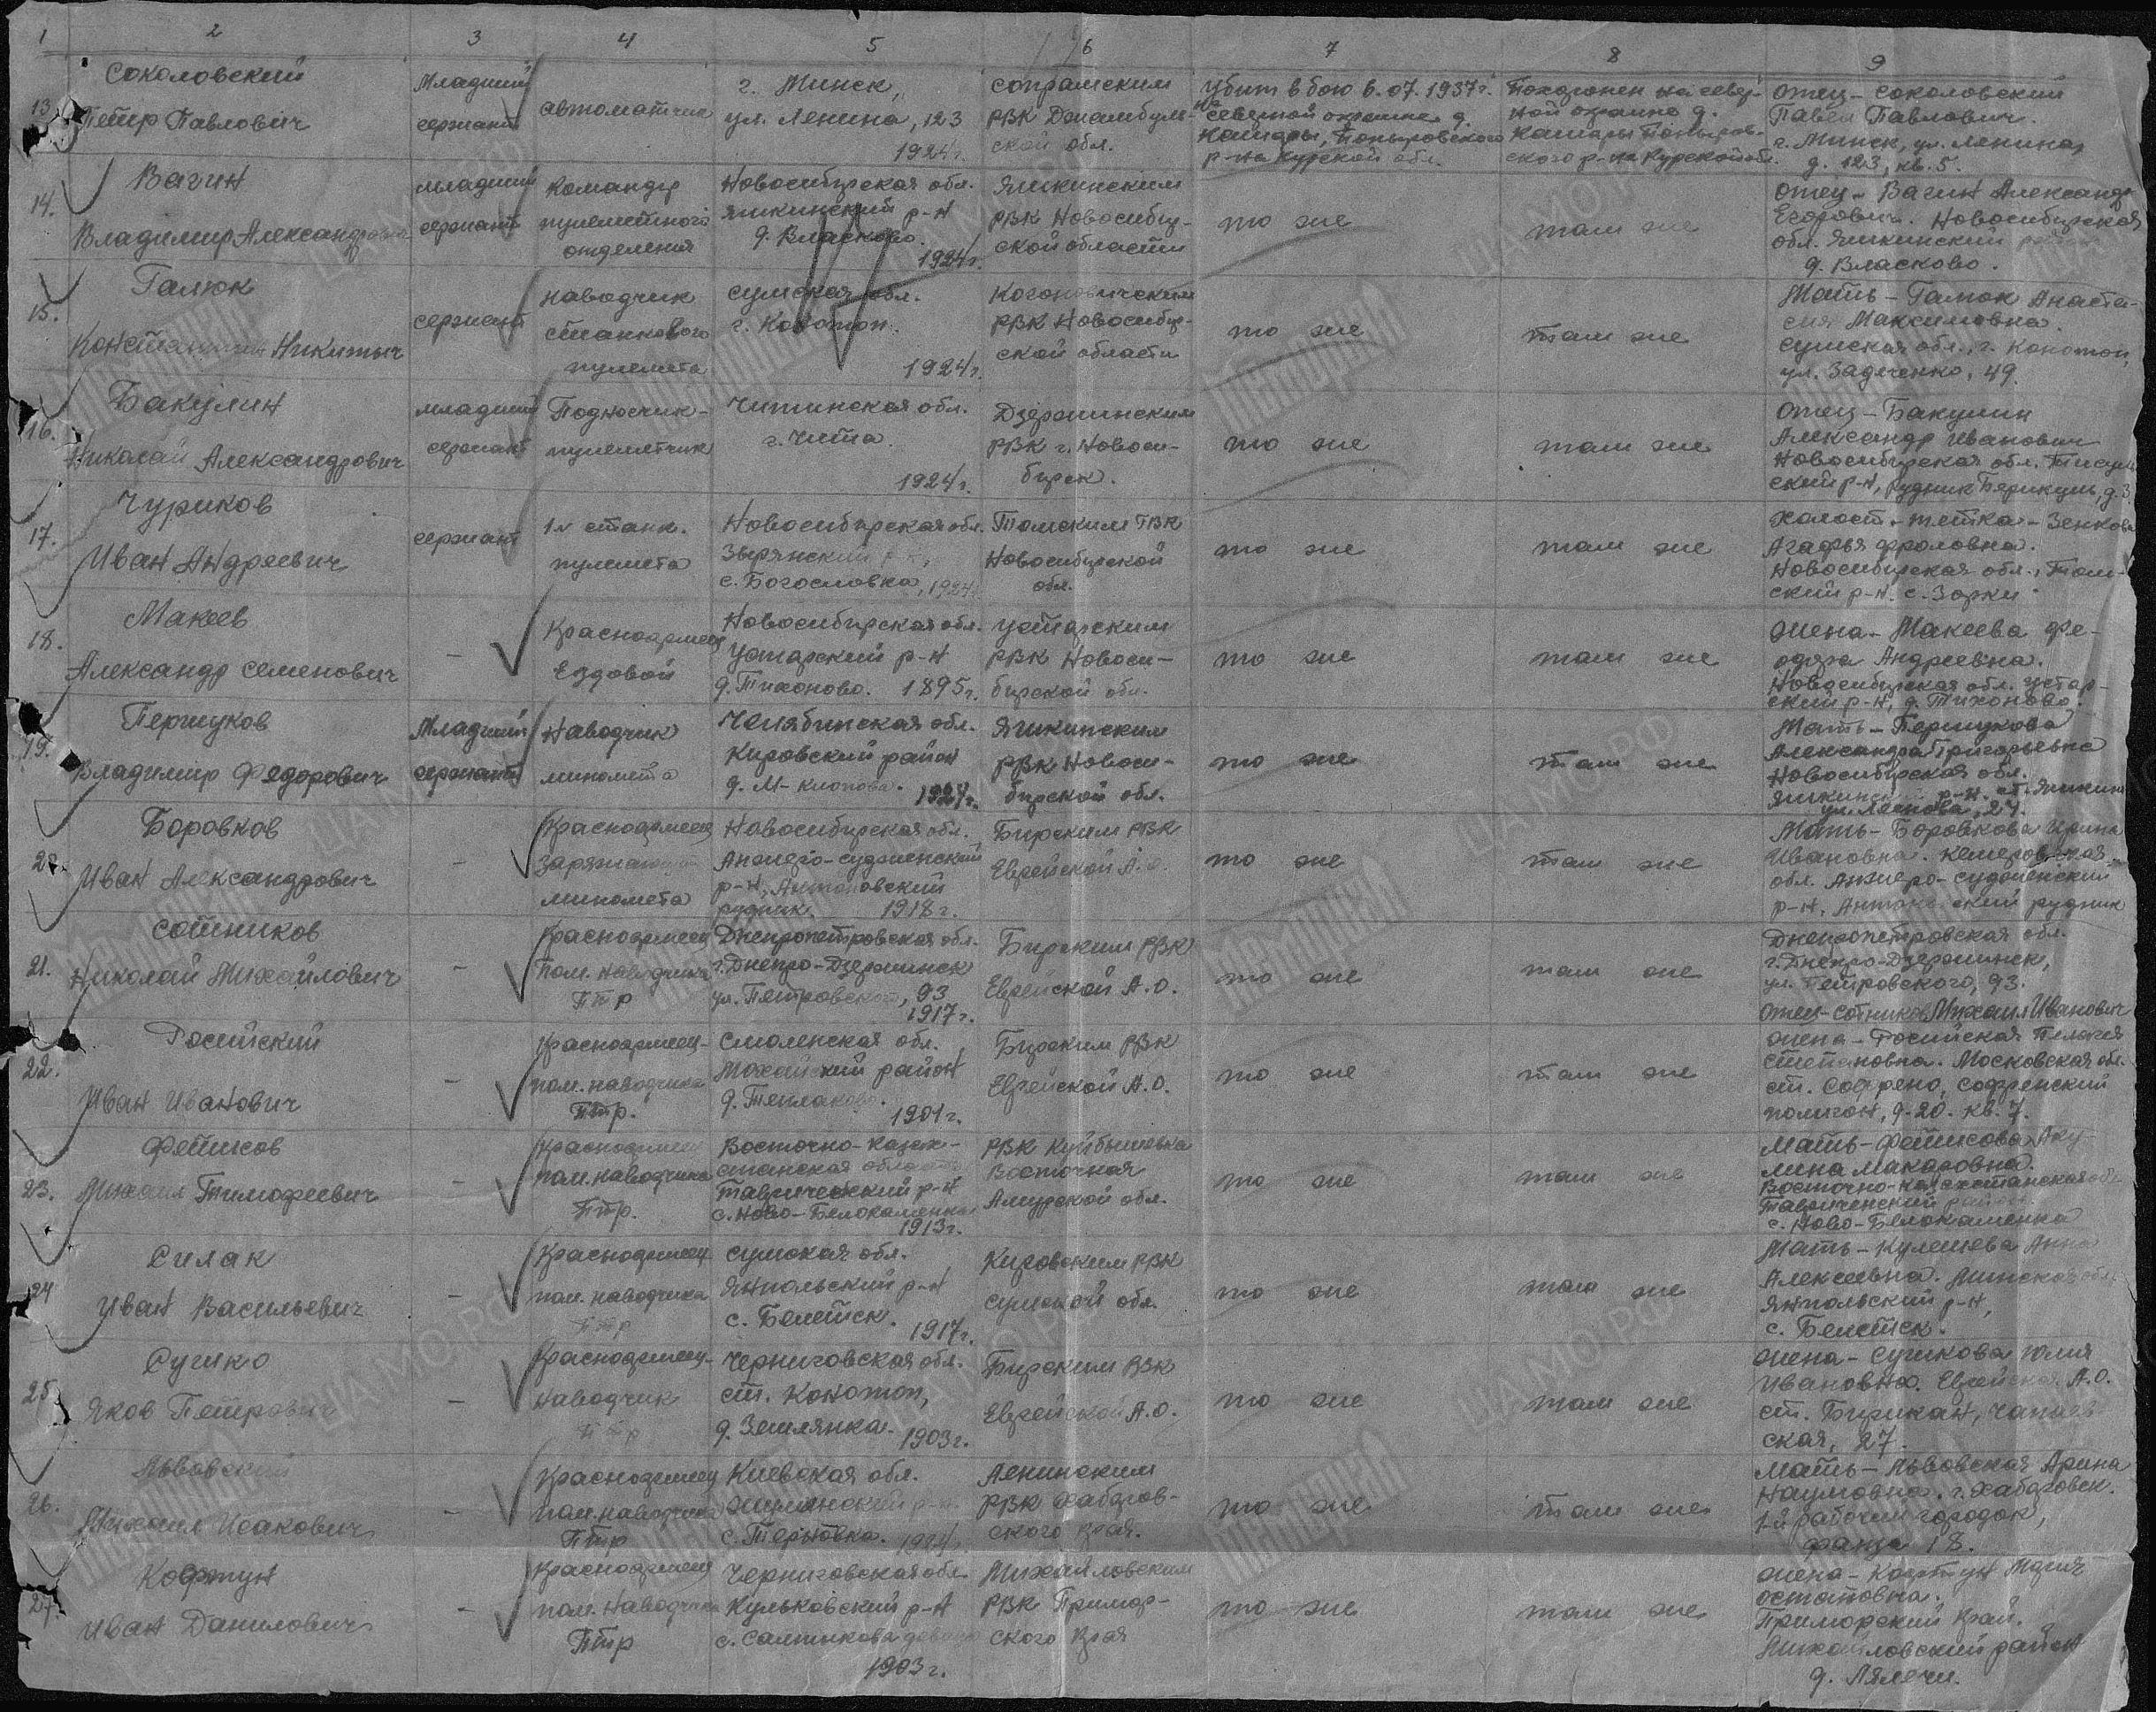 1 2 3 4 5 6 7 8 9
13
Соколовский
Петр Павлович
Младший
сержант
автоматчик
г. Минск,
ул. Ленина, 123
1924г.
РВК Джамбуль-
ской обл.
Убит в бою 6.07.1937г.
северной окраине д.
Кашары, Поныровского
р-на Курской обл.
Похоронен на север-
ной окраине д.
Кашары Поныров-
ского р-на Курской обл.
Отец - Соколовский
Павел Павлович.
г. Минск, ул. Ленина,
д. 123, кв. 5.
14.
Вагин
Владимир Александрович
младший
сержант
Командир
пулеметного
отделения
Новосибирская обл.
Яшкинский р-н
д. Власково.
1924г.
Яшкинским
РВК Новосибир-
ской области
то же
там же
Отец - Вагин Александр
Егорович. Новосибирская
обл. Яшкинский район
д. Власково.
15.
Галюк
Константин Никитич
сержант
наводчик
станкового
пулемета
Сумская обл.
г. Конотоп.
1924г.
Кагановическим
РВК Новосибир-
ской области
то же
там же
Мать - Галюк Анаста-
сия Максимовна.
Сумская обл., г. Конотоп,
ул. Задеченко, 49.
16.
Бакулин
Николай Александрович
младший
сержант
Подносчик-
пулеметчик
Читинская обл.
г. Чита.
1924г.
Дзержинским
РВК г. Новоси-
бирск.
то же
там же
Отец - Бакулин
Александр Иванович
Новосибирская обл. Тисуль-
ский р-н, рудник Берикуль, д. 3
17.
Чуриков
Иван Андреевич
сержант
1н станк.
пулемета
Новосибирская обл.
Зырянский р-н,
с. Богословка, 1924
Томским ГВК
Новосибирской
обл.
то же
там же
Холост - тетка - Зенкова
Агафья Фроловна.
Новосибирская обл., Том-
ский р-н. с. Зорки
18.
Макеев
Александр Семенович
-
Красноармеец
Ездовой
Новосибирская обл.
Устарский р-н
д. Тихоново. 1895г.
Устарским
РВК Новоси-
бирской обл.
то же
там же
Жена - Макеева Фе-
дора Андреевна.
Новосибирская обл. Устар-
ский р-н, д. Тихоново.
19.
Першуков
Владимир Федорович
Младший
сержант
Наводчик
миномета
Челябинская обл.
Кировский район
д. М-Клопова.
1924г.
Яшкинским
РВК Новоси-
бирской обл.
то же
там же
Мать - Першукова
Александра Григорьевна
Новосибирская обл.
Яшкинский р-н. ст. Яшкино
27.
20.
Боровков
Иван Александрович
-
Красноармеец
заряжающий
миномета
Новосибирская обл.
Анжеро-Судженский
р-н, Антоновский
рудник. 1918г.
Бирским РВК
Еврейской А.О.
то же
там же
Мать - Боровкова Ирина
Ивановна. Кемеровская
обл. Анжеро-Судженский
р-н, Антоновский рудник
21.
Сотников
Николай Михайлович
-
Красноармеец
пом. наводчика
ПТР
Днепропетровская обл.
г. Днепро-Дзержинск
ул. Петровского, 93
1917г.
Бирским РВК
Еврейской А.О.
то же
там же
Днепропетровская обл.
г. Днепро-Дзержинск,
ул. Петровского, 93.
Отец - Сотников Михаил Иванович
22.
Росийский
Иван Иванович
-
Красноармеец-
пом. наводчика
ПТР.
Смоленская обл.
Можайский район
д. Теплаково.
1901г.
Бирским РВК
Еврейской А.О.
то же
там же
Жена - Росийская Пелагея
Степановна. Московская обл.
ст. Софрено, Софренский
полигон, д. 20. кв. 7.
23.
Фетисов
Михаил Тимофеевич
-
Красноармеец
пом. наводчика
ПТР.
Восточно-Казах-
станская область
Таврический р-н
с. Ново-Белокаменка
1913г.
РВК Куйбышевка
Восточная
Амурской обл.
то же
там же
Мать - Фетисова Аку-
лина Макаровна.
Восточно-Казахстанская обл.
Таврический район
с. Ново-Белокаменка
24
Силак
Иван Васильевич
-
Красноармеец
пом. наводчика
ПТР
Сумская обл.
Ямпольский р-н
с. Белетск.
1917г.
Кировским РВК
Сумской обл.
то же
там же
Мать - Кулешева Анна
Алексеевна.
Ямпольский р-н,
с. Белетск.
25
Сушко
Яков Петрович
-
Красноармеец-
наводчик
ПТР
Черниговская обл.
ст. Конотоп,
д. Землянка. 1903г.
Бирским РВК
Еврейской А.О.
то же
там же
Жена - Сушкова Юлия
Ивановна. Еврейская А.О.
ст. Бирикан, Чапаев-
ская, 27.
26.
Львовский
Михаил Исакович
-
Красноармеец
пом. наводчика
ПТР
Киевская обл.
с. Терновка. 1924г.
Ленинским
РВК Хабаров-
ского края.
то же
там же
Мать - Львовская Арина
Наумовна. г. Хабаровск.
1-й рабочий городок,
фанза 18.
27.
Ковртун
Иван Данилович
-
Красноармеец
пом. наводчика
ПТР
Черниговская обл.
Кульковский р-н
с. Салтыкова девица
1903г.
Михайловским
РВК Примор-
ского края
то же
там же
Жена - Ковртун Мария
Остаповна.
Приморский край.
Михайловский район
д. Лялечи.